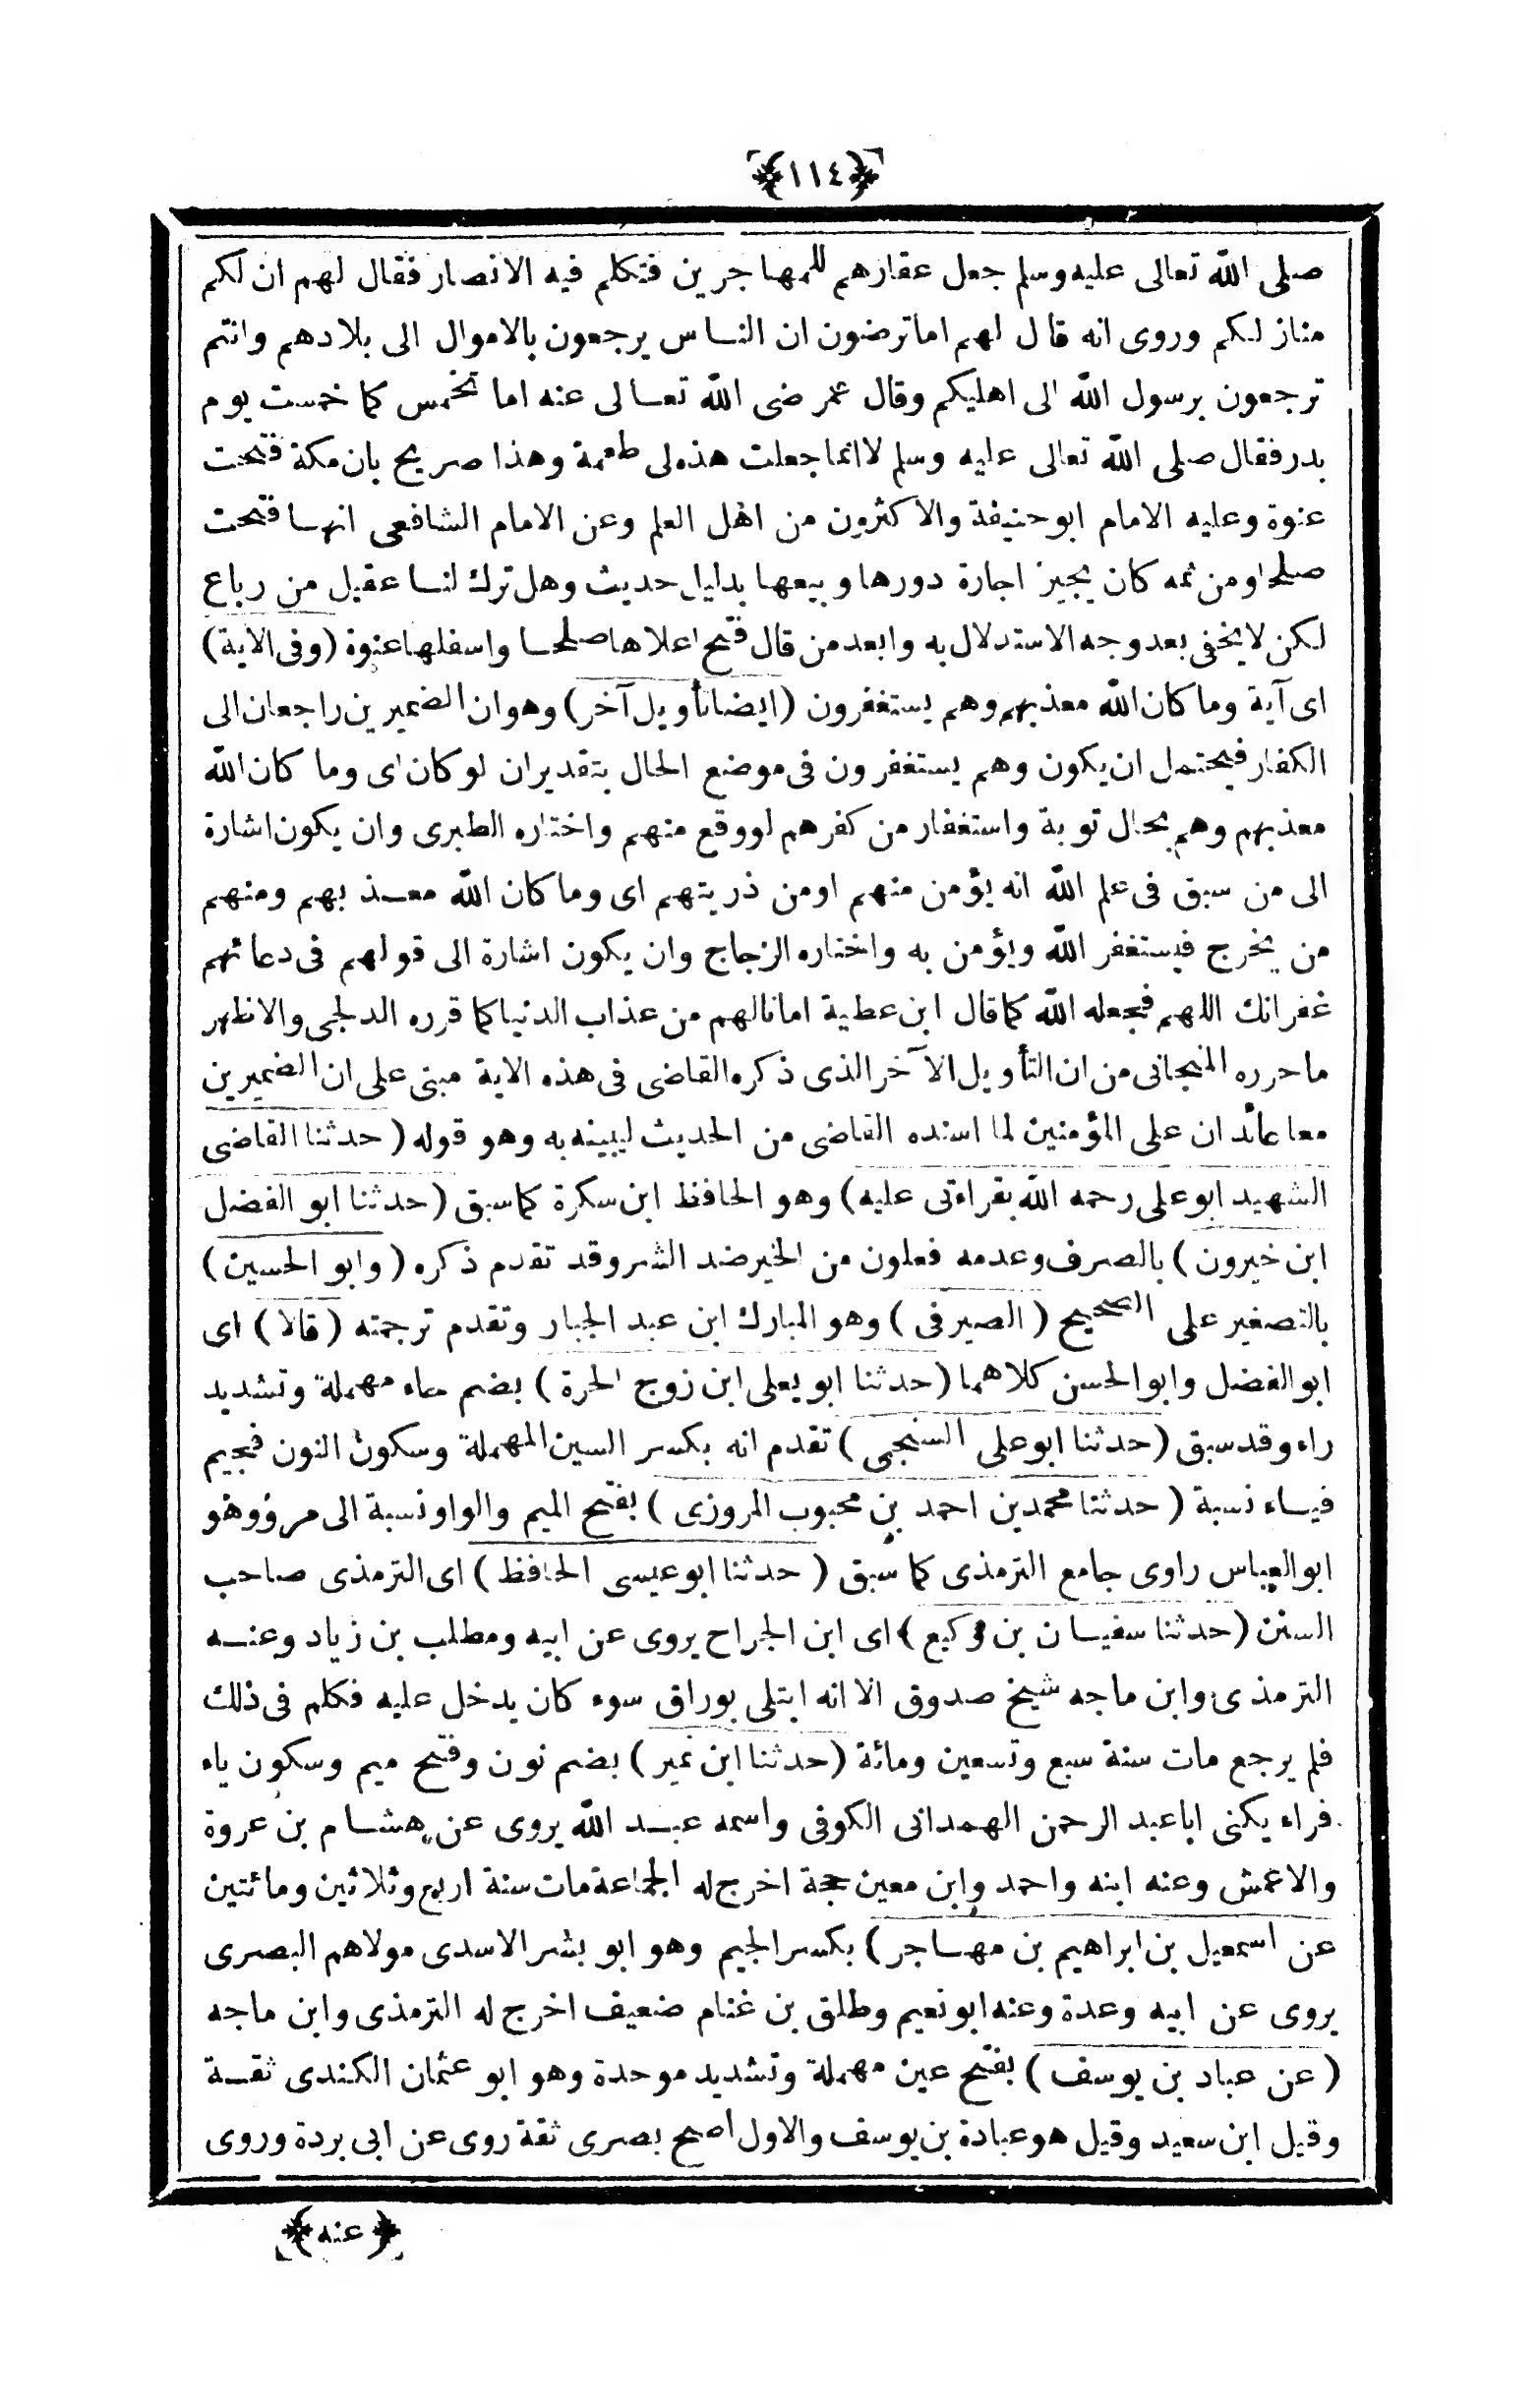 ﴿١١٤﴾
صلى الله تعالى عليه وسلم جعل عقارهم للمهاجرين فتكلم فيه الانصار فقال لهم ان لكم
منازلكم وروى انه قال لهم اما ترضون ان الناس يرجعون بالاموال الى بلادهم وانتم
ترجعون برسول الله الى اهليكم وقال عمر رضى الله تعالى عنه اما تخمس كما خمست يوم
بدر فقال صلى الله تعالى عليه وسلم لا انما جعلت هذه لى طعمة وهذا صريح بان مكة فتحت
عنوة وعليه الامام ابو حنيفة والاكثرون من اهل العلم وعن الامام الشافعى انها فتحت
صلحا ومن ثمه كان يجيز اجارة دورها وبيعها بدليل حديث وهل ترك لنا عقيل من رباع
لكن لا يخفى بعد وجه الاستدلال به وابعد من قال فتح اعلاها صلحا واسفلها عنوة (وفى الاية)
اى آية وما كان الله معذبهم وهم يستغفرون (ايضا تأويل آخر) وهو ان الضميرين راجعان الى
الكفار فيحتمل ان يكون وهم يستغفرون فى موضع الحال بتقدير ان لو كان اى وما كان الله
معذبهم وهم بحال توبة واستغفار من كفرهم لو وقع منهم واختاره الطبرى وان يكون اشارة
الى من سبق فى علم الله انه يؤمن منهم او من ذريتهم اى وما كان الله معذبهم ومنهم
من يخرج فيستغفر الله ويؤمن به واختاره الزجاج وان يكون اشارة الى قولهم فى دعائهم
غفرانك اللهم فجعله الله كما قال ابن عطية امانا لهم من عذاب الدنيا كما قرره الدلجى والاظهر
ما حرره المنجانى من ان التأويل الآخر الذى ذكره القاضى فى هذه الاية مبنى على ان الضميرين
معا عائدان على المؤمنين لما اسنده القاضى من الحديث ليبينه به وهو قوله (حدثنا القاضى
الشهيد ابو على رحمه الله بقراءتى عليه) وهو الحافظ ابن سكرة كما سبق (حدثنا ابو الفضل
ابن خيرون) بالصرف وعدمه فعلون من الخير ضد الشر وقد تقدم ذكره (وابو الحسين)
بالتصغير على الصحيح (الصيرفى) وهو المبارك ابن عبد الجبار وتقدم ترجمته (قالا) اى
ابو الفضل وابو الحسن كلاهما (حدثنا ابو يعلى ابن زوج الحرة) بضم حاء مهملة وتشديد
راء وقد سبق (حدثنا ابو على السنجى) تقدم انه بكسر السين المهملة وسكون النون فجيم
فياء نسبة (حدثنا محمد بن احمد بن محبوب المروزى) بفتح الميم والواو نسبة الى مرو وهو
ابو العباس راوى جامع الترمذى كما سبق (حدثنا ابو عيسى الحافظ) اى الترمذى صاحب
السنن (حدثنا سفيان بن وكيع) اى ابن الجراح يروى عن ابيه ومطلب بن زياد وعنه
الترمذى وابن ماجه شيخ صدوق الا انه ابتلى بوراق سوء كان يدخل عليه فكلم فى ذلك
فلم يرجع مات سنة سبع وتسعين ومائة (حدثنا ابن نمير) بضم نون وفتح ميم وسكون ياء
فراء يكنى ابا عبد الرحمن الهمدانى الكوفى واسمه عبد الله يروى عن هشام بن عروة
والاعمش وعنه ابنه واحمد وابن معين حجة اخرج له الجماعة مات سنة اربع وثلاثين ومائتين
عن اسمعيل بن ابراهيم بن مهاجر) بكسر الجيم وهو ابو بشر الاسدى مولاهم البصرى
يروى عن ابيه وعدة وعنه ابو نعيم وطلق بن غنام ضعيف اخرج له الترمذى وابن ماجه
(عن عباد بن يوسف) بفتح عين مهملة وتشديد موحدة وهو ابو عثمان الكندى ثقة
وقيل ابن سعيد وقيل هو عبادة بن يوسف والاول اصح بصرى ثقة روى عن ابى بردة وروى
﴿عنه﴾